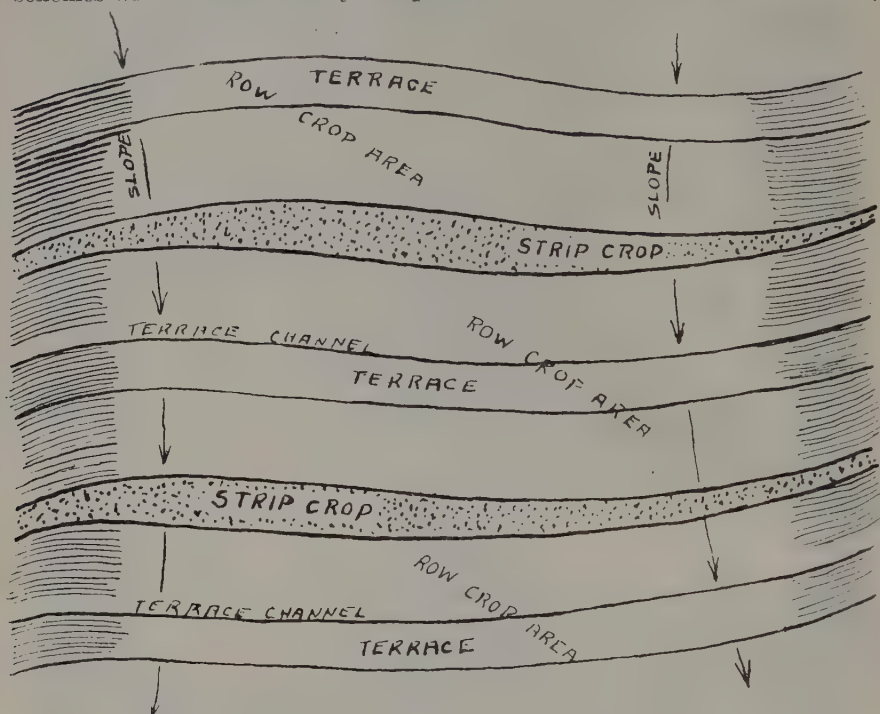 TERRACE
ROW CROP AREA
SLOPE
SLOPE
STRIP CROP
TERRACE CHANNEL
ROW CROP AREA
TERRACE
STRIP CROP
ROW CROP AREA
TERRACE CHANNEL
TERRACE